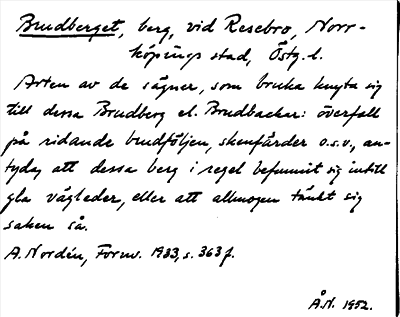 Brudberget, berg, vid Resebro, Norr-
köpings stad, Östg. l.
Arten av de sägner, som bruka knyta sig
till dessa Brudberg el. Brudbackar: överfall
på ridande brudföljen, skenfärder o.s.v., an-
tyda, att dessa berg i regel befunnit sig intill
gla vägleder, eller att allmogen tänkt sig
saken så.
A. Nordén, Fornv. 1933, s. 363 f.
Å.N. 1952.